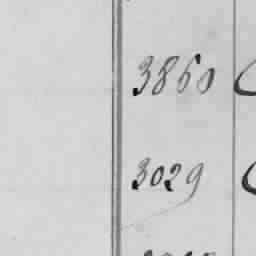 3860
3029